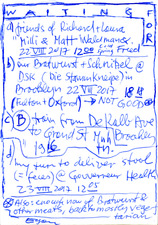 WAITING FOR
a) friends of Richard + Laura
Milli & Matt
22 VIII 2017 12
Fried
b) our Bratwurst + Schnitzel @
DSK (Die Stammkneipe) in
Brooklyn 22 VIII 2017 18
(Fulton + Oxford) → NOT GOOD
c) B train from DeKalb Ave
to Grand St
19
d) my turn to deliver stool
(= feces) @ Gouverneur Health
23 VIII 2017 12 05
e) Also: enough now of Bratwurst &
other meats, back to mostly vege-
tarian